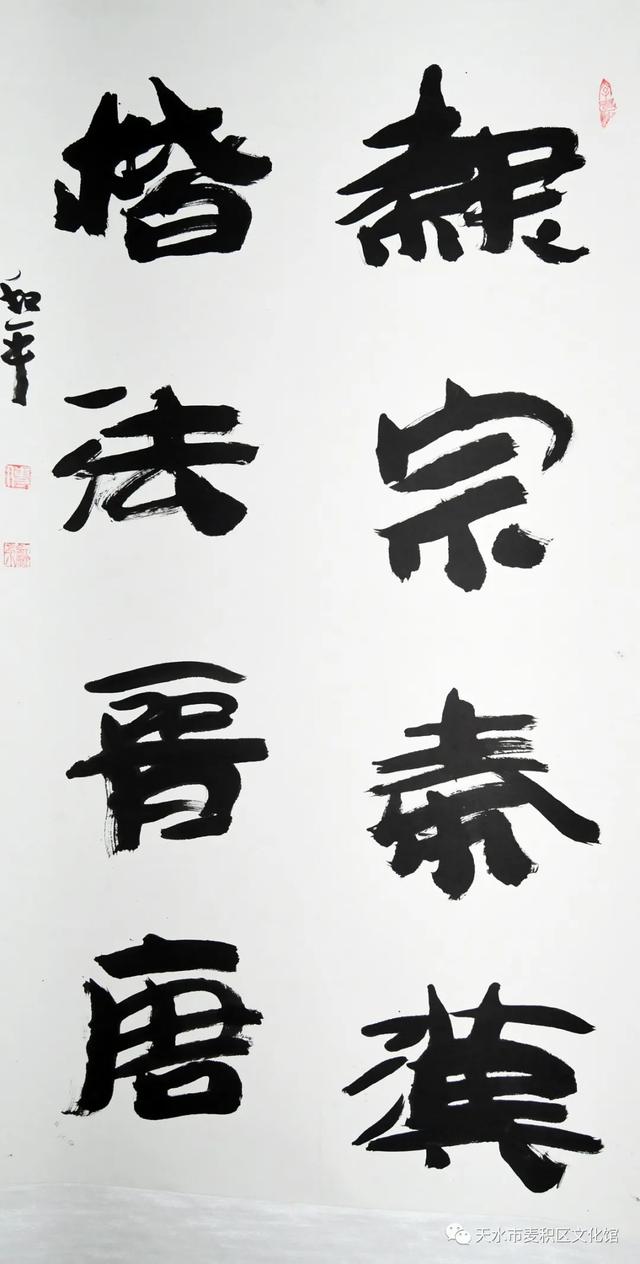 隸宗秦漢
楷法晋唐
和平
天水市麦积区文化馆